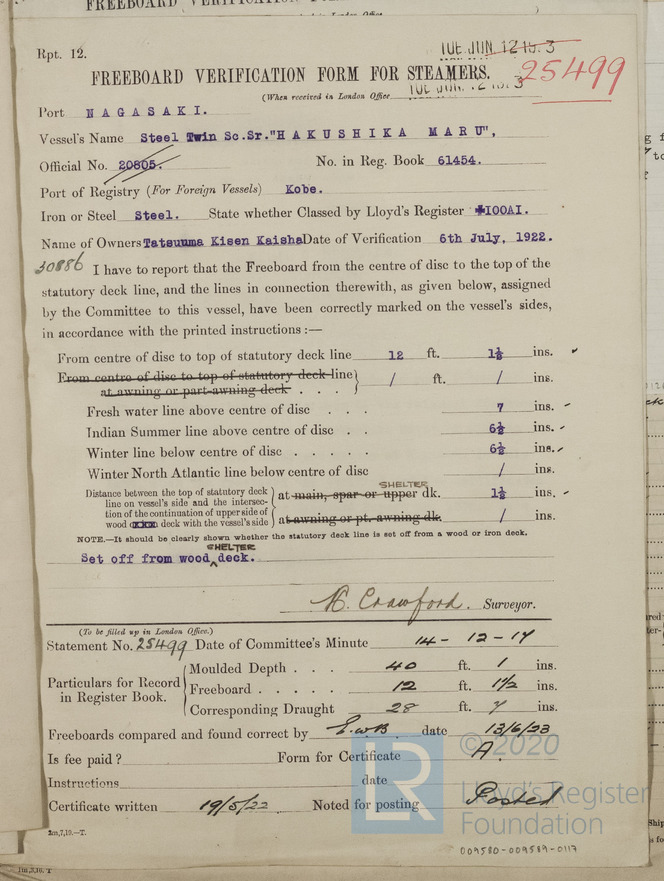 FREEBOARD VERIFICATION
Rpt. 12.
TUE. JUN. 12 19 3
FREEBOARD VERIFICATION FORM FOR STEAMERS. 25499
(When received in London Office TUE. JUN. 12 19 3
Port NAGASAKI.
Vessel's Name Steel Twin Sc.Sr."HAKUSHIKA MARU",
Official No. 20805. No. in Reg. Book 61454.
Port of Registry (For Foreign Vessels) Kobe.
Iron or Steel Steel. State whether Classed by Lloyd's Register ✠100A1.
Name of Owners Tatsuuma Kisen Kaisha Date of Verification 6th July, 1922.
30886 I have to report that the Freeboard from the centre of disc to the top of the
statutory deck line, and the lines in connection therewith, as given below, assigned
by the Committee to this vessel, have been correctly marked on the vessel's sides,
in accordance with the printed instructions :—
From centre of disc to top of statutory deck line 12 ft. 1½ ins.
From centre of disc to top of statutory deck line / ft. / ins.
at awning or part-awning deck . . .
Fresh water line above centre of disc . . . 7 ins.
Indian Summer line above centre of disc . . 6½ ins.
Winter line below centre of disc . . . . . 6½ ins.
Winter North Atlantic line below centre of disc / ins.
Distance between the top of statutory deck
line on vessel's side and the intersec-
tion of the continuation of upper side of
wood xxx deck with the vessel's side
SHELTER
at main, spar or upper dk. 1½ ins.
at awning or pt. awning dk. / ins.
NOTE.—It should be clearly shown whether the statutory deck line is set off from a wood or iron deck.
SHELTER
Set off from wood deck.
Crawford. Surveyor.
(To be filled up in London Office.)
Statement No. 25499 Date of Committee's Minute 14-12-17
Particulars for Record
in Register Book.
Moulded Depth . . . 40 ft. 1 ins.
Freeboard . . . . . 12 ft. 1½ ins.
Corresponding Draught 28 ft. 7 ins.
Freeboards compared and found correct by E.W.B. date 13/6/23
Is fee paid ? Form for Certificate A.
Instructions date
Certificate written 19/5/22 Noted for posting Posted
2m,7,19.—T.
LR
© 2020
Lloyd's Register
Foundation
009580-009589-0117